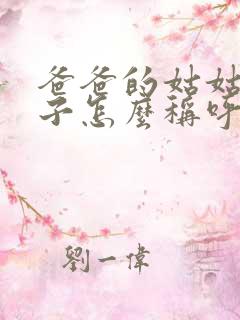 爸爸的姑姑
子怎麼稱呼
劉一偉